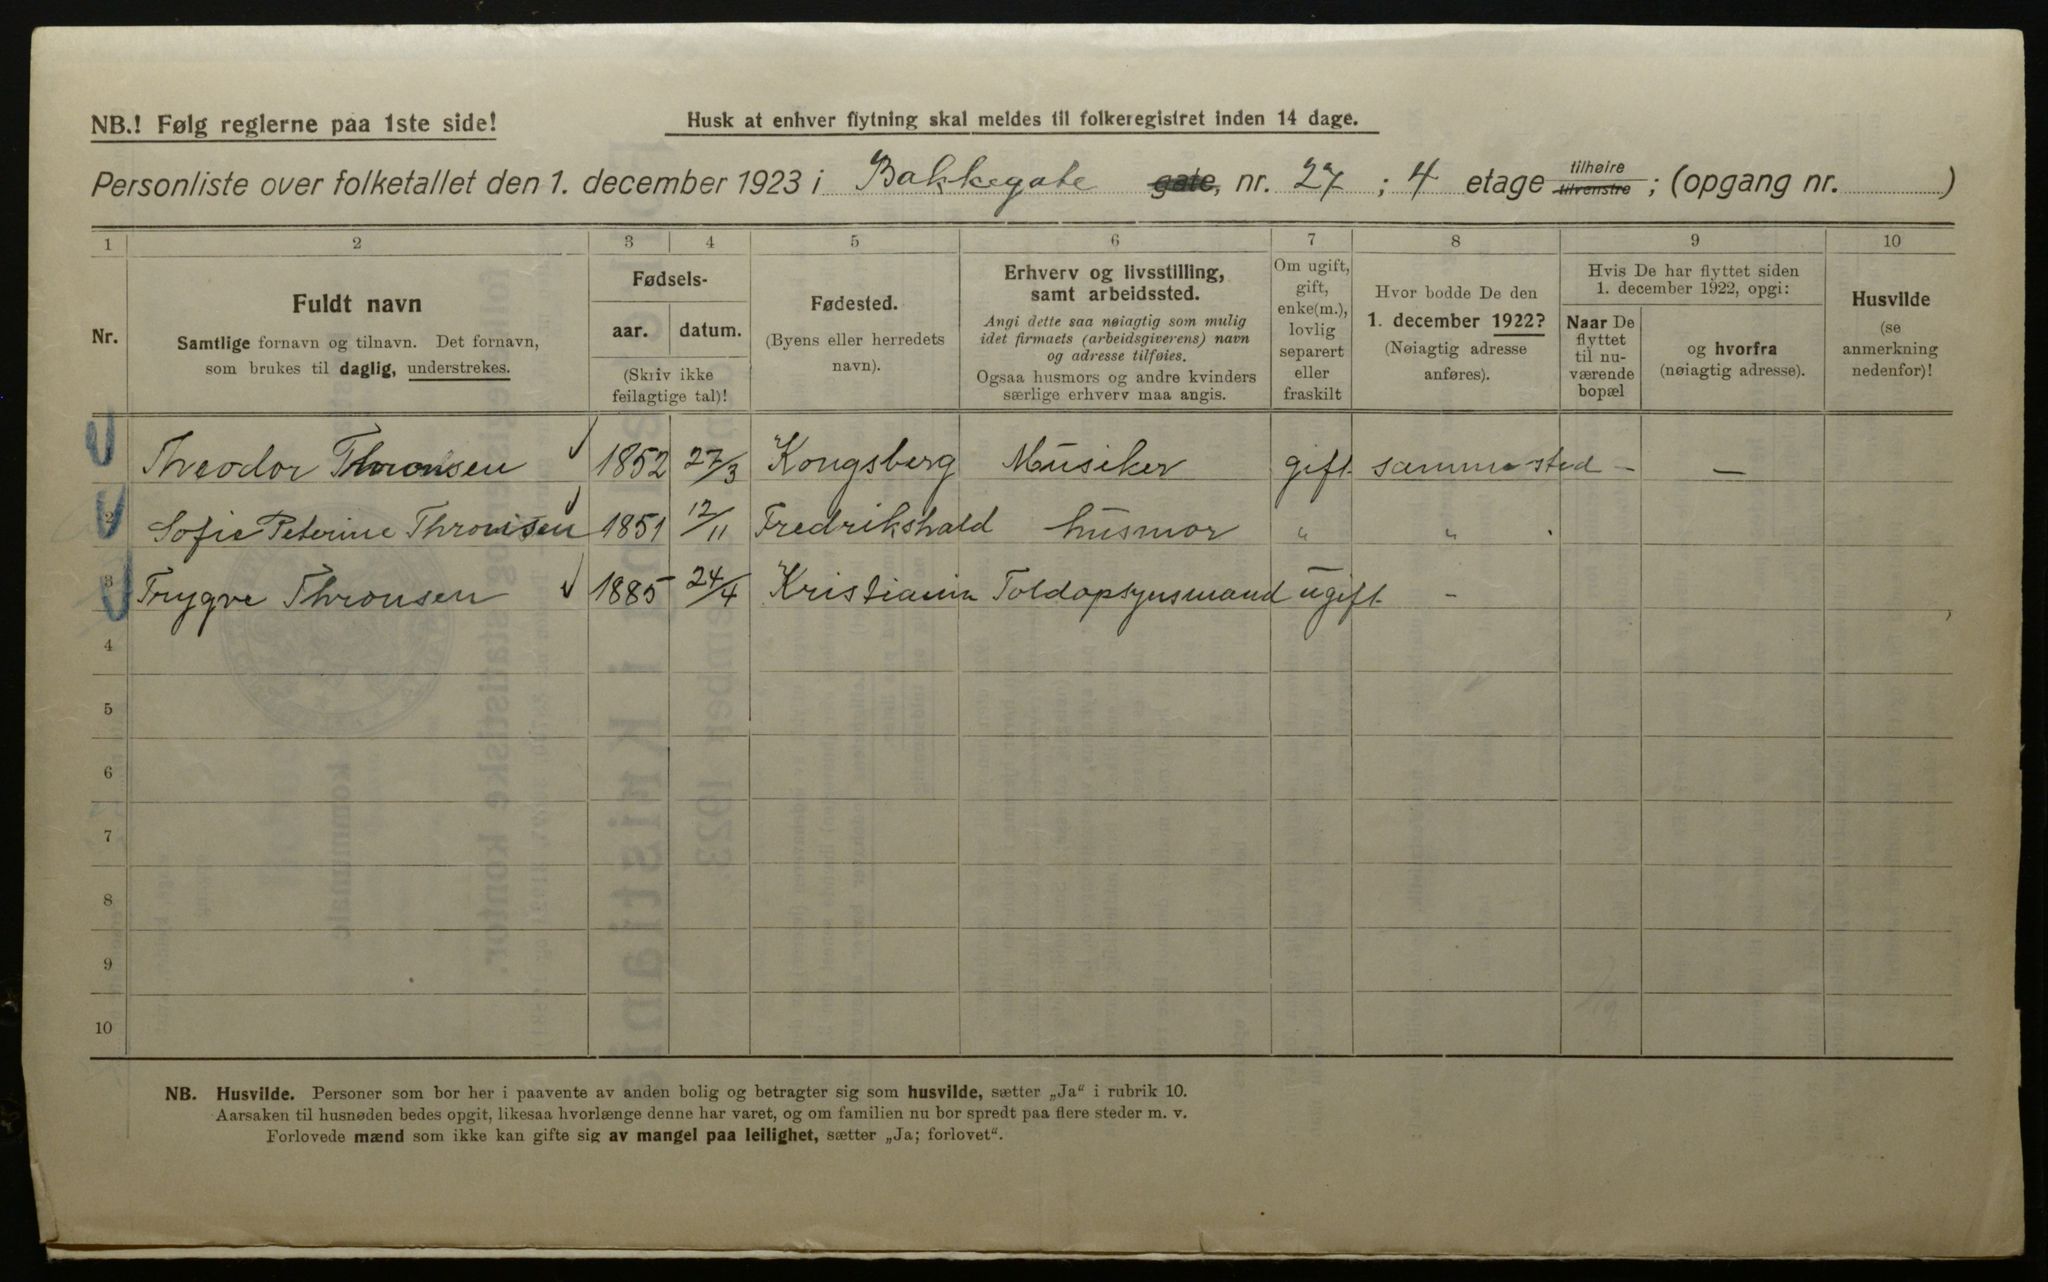 NB.! Følg reglerne paa 1ste side!
Husk at enhver flytning skal meldes til folkeregistret inden 14 dage.
Personliste over folketallet den 1. december 1923 i Bakkegate gate, nr. 27 ; 4 etage tilhøire tilvenstre ; (opgang nr. )
1 2 3 4 5 6 7 8 9 10
Nr.
Fuldt navn
Samtlige fornavn og tilnavn. Det fornavn,
som brukes til daglig, understrekes.
Fødsels-
aar. datum.
(Skriv ikke
feilagtige tal)!
Fødested.
(Byens eller herredets
navn).
Erhverv og livsstilling,
samt arbeidssted.
Angi dette saa nøiagtig som mulig
idet firmaets (arbeidsgiverens) navn
og adresse tilføies.
Ogsaa husmors og andre kvinders
særlige erhverv maa angis.
Om ugift,
gift,
enke(m.),
lovlig
separert
eller
fraskilt
Hvor bodde De den
1. december 1922?
(Nøiagtig adresse
anføres).
Hvis De har flyttet siden
1. december 1922, opgi:
Naar De
flyttet
til nu-
værende
bopæl
og hvorfra
(nøiagtig adresse).
Husvilde
(se
anmerkning
nedenfor)!
Theodor Thronsen 1852 27/3 Kongsberg Musiker gift samme sted - -
2 Sofie Peterine Thronsen 1851 12/11 Fredrikshald husmor " "
3 Trygve Thronsen 1885 24/4 Kristiania Toldopsynsmand ugift -
4
5
6
7
8
9
10
NB. Husvilde. Personer som bor her i paavente av anden bolig og betragter sig som husvilde, sætter „Ja“ i rubrik 10.
Aarsaken til husnøden bedes opgit, likesaa hvorlænge denne har varet, og om familien nu bor spredt paa flere steder m. v.
Forlovede mænd som ikke kan gifte sig av mangel paa leilighet, sætter „Ja; forlovet“.